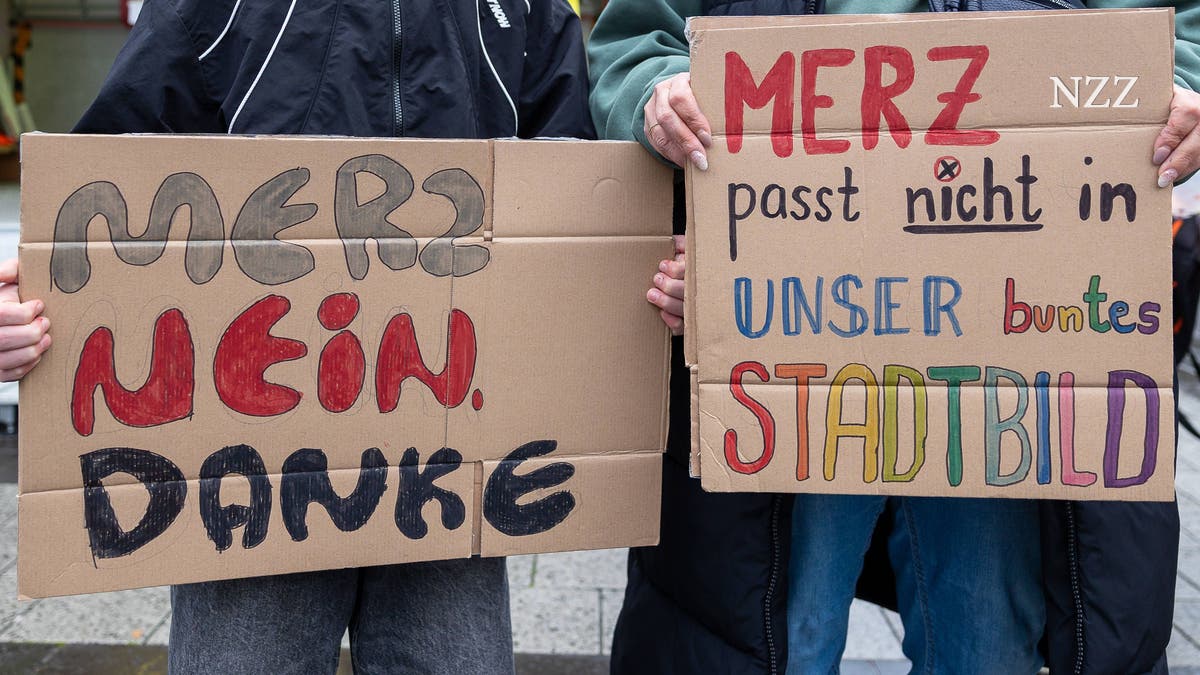 MERZ
NEIN.
DANKE
MERZ
passt nicht in
UNSER buntes
STADTBILD
NZZ